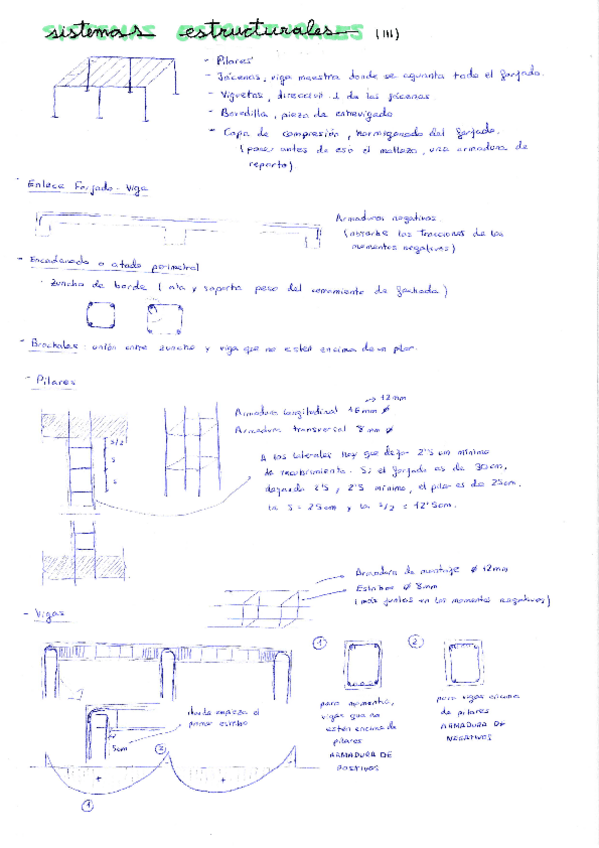 sistemas estructurales (III)
- Pilares
- Jácenas, viga maestra donde se aguanta todo el forjado.
- Viguetas, dirección ⊥ de las jácenas.
- Bovedilla, pieza de entrevigado
- Capa de compresión, hormigonado del forjado.
(poner antes de eso el mallazo, una armadura de
reparto).
- Enlace Forjado-Viga
Armaduras negativas.
(absorbe las tracciones de los
momentos negativos)
- Encadenado o atado perimetral
· Zuncho de borde (ata y soporta peso del cerramiento de fachada)
- Brochales: unión entre zuncho y viga que no esten encima de un pilar.
- Pilares
→ 12mm
Armadura longitudinal 16mm Ø
Armadura transversal 8mm Ø
S/2
S
S
A los laterales hay que dejar 2'5 cm mínimo
de recubrimiento. Si el forjado es de 30cm,
dejando 2'5, 2'5 mínimo, el pilar es de 25cm.
la S = 25cm y la S/2 = 12'5cm.
Armadura de montaje Ø 12mm
Estribos Ø 8mm
(más juntos en los momentos negativos)
- Vigas
① ②
donde empieza el
primer estribo
5cm
para momentos,
vigas que no
esten encima de
pilares
ARMADURA DE
POSITIVOS
para vigas encima
de pilares
ARMADURA DE
NEGATIVOS
②
+ +
①